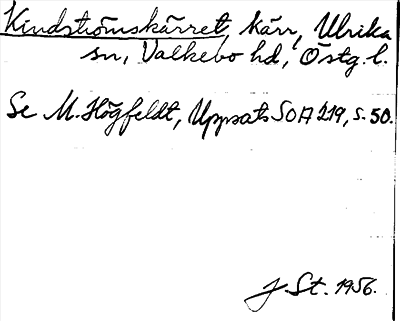 Kindströmskärret, kärr, Ulrika
sn, Valkebo hd, Östg. l.
Se M. Högfeldt, Uppsats SOA 219, s. 50.
J. St. 1956.